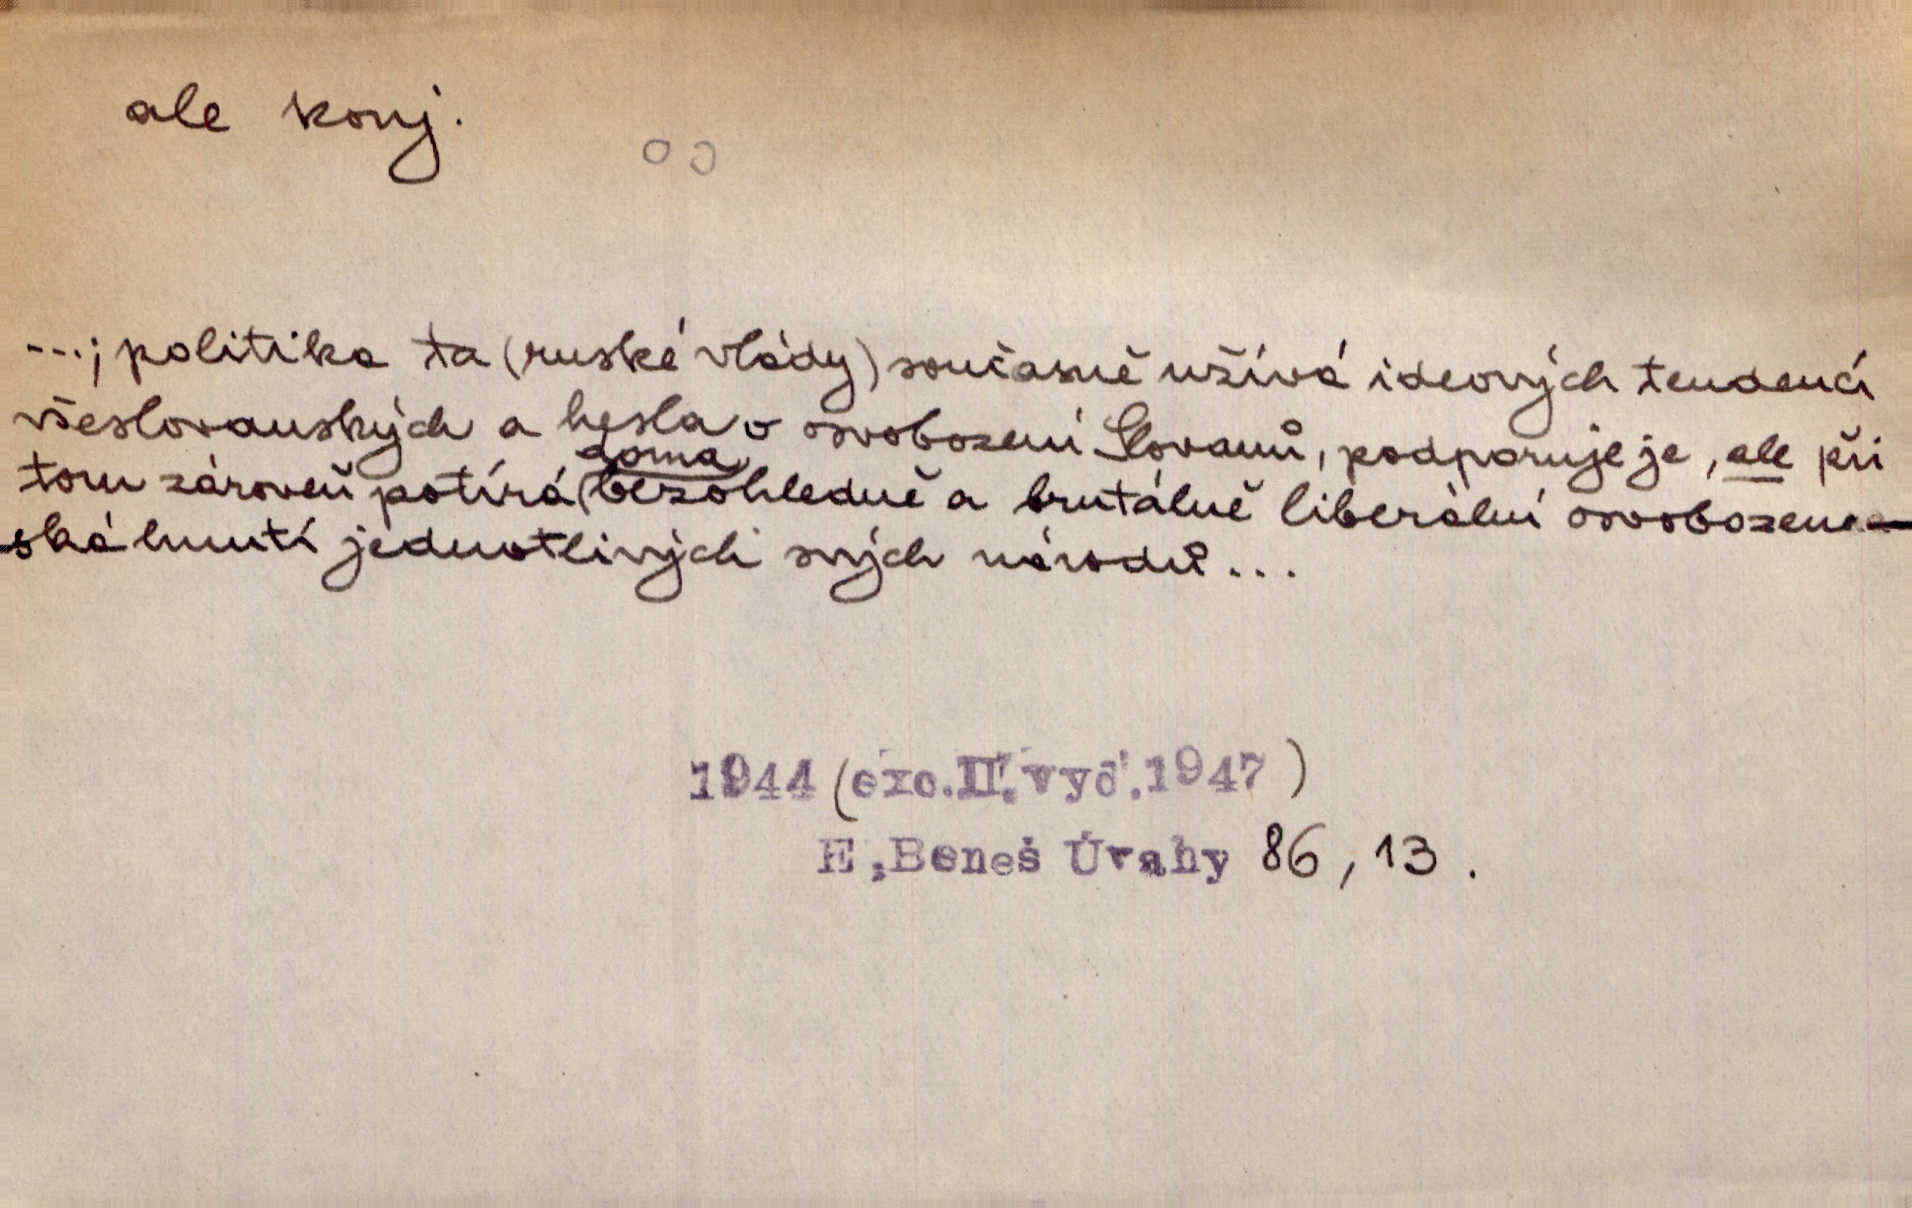 ale konj.
...; politika ta (ruské vlády) současně užívá ideových tendencí
všeslovanských a hesla o osvobození Slovanů, podporuje je, ale při
tom zároveň potírá doma bezohledně a brutálně liberální osvobozene-
ská hnutí jednotlivých svých národů...
1944 (exc. II. vyd. 1947)
E. Beneš Úvahy 86, 13.